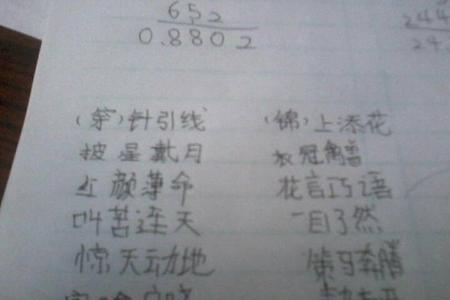 652
0.8802
244
24.
(穿)针引线 (锦)上添花
披星戴月 衣冠禽兽
红颜薄命 花言巧语
叫苦连天 一目了然
惊天动地 万马奔腾